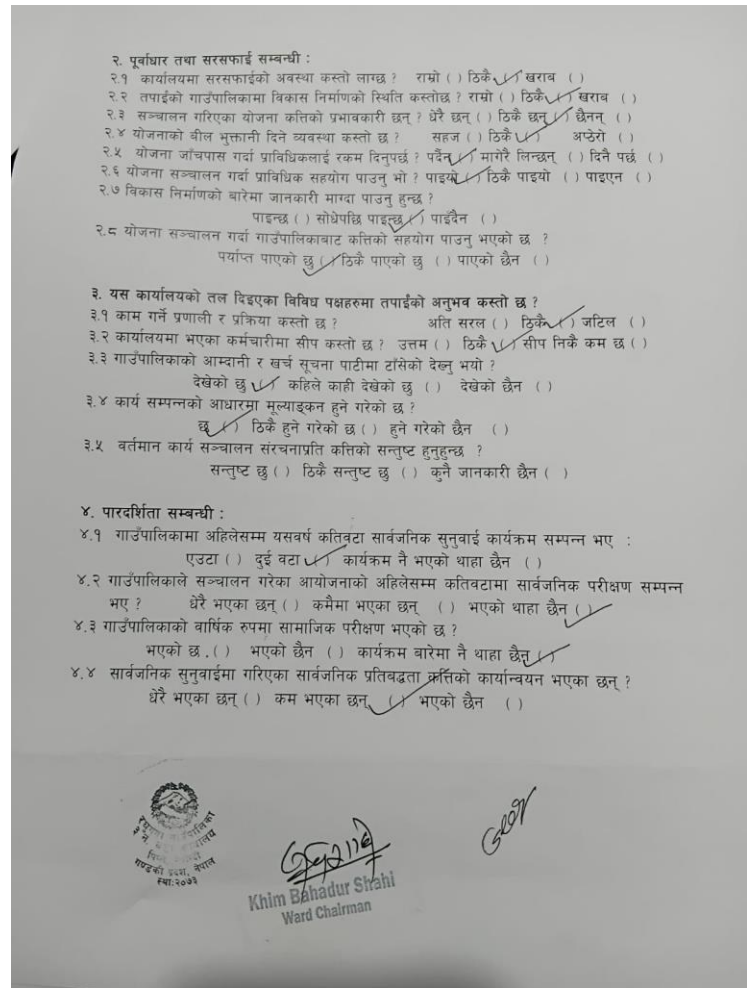 २. पूर्वाधार तथा सरसफाई सम्बन्धी :
२.१ कार्यालयमा सरसफाईको अवस्था कस्तो लाग्छ ? राम्रो ( ) ठिकै (✓) खराब ( )
२.२ तपाईंको गाउँपालिकामा विकास निर्माणको स्थिति कस्तोछ ? राम्रो ( ) ठिकै (✓) खराब ( )
२.३ सञ्चालन गरिएका योजना कत्तिको प्रभावकारी छन् ? धेरै छन् ( ) ठिकै छन् (✓) छैनन् ( )
२.४ योजनाको बील भुक्तानी दिने व्यवस्था कस्तो छ ? सहज ( ) ठिकै (✓) अप्ठेरो ( )
२.५ योजना जाँचपास गर्दा प्राविधिकलाई रकम दिनुपर्छ ? पर्दैन (✓) मागेरै लिन्छन् ( ) दिनै पर्छ ( )
२.६ योजना सञ्चालन गर्दा प्राविधिक सहयोग पाउनु भो ? पाइयो (✓) ठिकै पाइयो ( ) पाइएन ( )
२.७ विकास निर्माणको बारेमा जानकारी माग्दा पाउनु हुन्छ ?
पाइन्छ ( ) सोधेपछि पाइन्छ (✓) पाइँदैन ( )
२.८ योजना सञ्चालन गर्दा गाउँपालिकाबाट कत्तिको सहयोग पाउनु भएको छ ?
पर्याप्त पाएको छु (✓) ठिकै पाएको छु ( ) पाएको छैन ( )
३. यस कार्यालयको तल दिइएका विविध पक्षहरुमा तपाईंको अनुभव कस्तो छ ?
३.१ काम गर्ने प्रणाली र प्रक्रिया कस्तो छ ? अति सरल ( ) ठिकै (✓) जटिल ( )
३.२ कार्यालयमा भएका कर्मचारीमा सीप कस्तो छ ? उत्तम ( ) ठिकै (✓) सीप निकै कम छ ( )
३.३ गाउँपालिकाको आम्दानी र खर्च सूचना पाटीमा टाँसेको देख्नु भयो ?
देखेको छु (✓) कहिले काही देखेको छु ( ) देखेको छैन ( )
३.४ कार्य सम्पन्नको आधारमा मूल्याङ्कन हुने गरेको छ ?
छ (✓) ठिकै हुने गरेको छ ( ) हुने गरेको छैन ( )
३.५ वर्तमान कार्य सञ्चालन संरचनाप्रति कत्तिको सन्तुष्ट हुनुहुन्छ ?
सन्तुष्ट छु ( ) ठिकै सन्तुष्ट छु ( ) कुनै जानकारी छैन ( )
४. पारदर्शिता सम्बन्धी :
४.१ गाउँपालिकामा अहिलेसम्म यसवर्ष कतिवटा सार्वजनिक सुनुवाई कार्यक्रम सम्पन्न भए :
एउटा ( ) दुई वटा (✓) कार्यक्रम नै भएको थाहा छैन ( )
४.२ गाउँपालिकाले सञ्चालन गरेका आयोजनाको अहिलेसम्म कतिवटामा सार्वजनिक परीक्षण सम्पन्न
भए ? धेरै भएका छन् ( ) कमैमा भएका छन् ( ) भएको थाहा छैन (✓)
४.३ गाउँपालिकाको वार्षिक रुपमा सामाजिक परीक्षण भएको छ ?
भएको छ . ( ) भएको छैन ( ) कार्यक्रम बारेमा नै थाहा छैन (✓)
४.४ सार्वजनिक सुनुवाईमा गरिएका सार्वजनिक प्रतिबद्धता कत्तिको कार्यान्वयन भएका छन् ?
धेरै भएका छन् ( ) कम भएका छन् (✓) भएको छैन ( )
गण्डकी प्रदेश, नेपाल
स्था:२०७३
Khim Bahadur Shahi
Ward Chairman